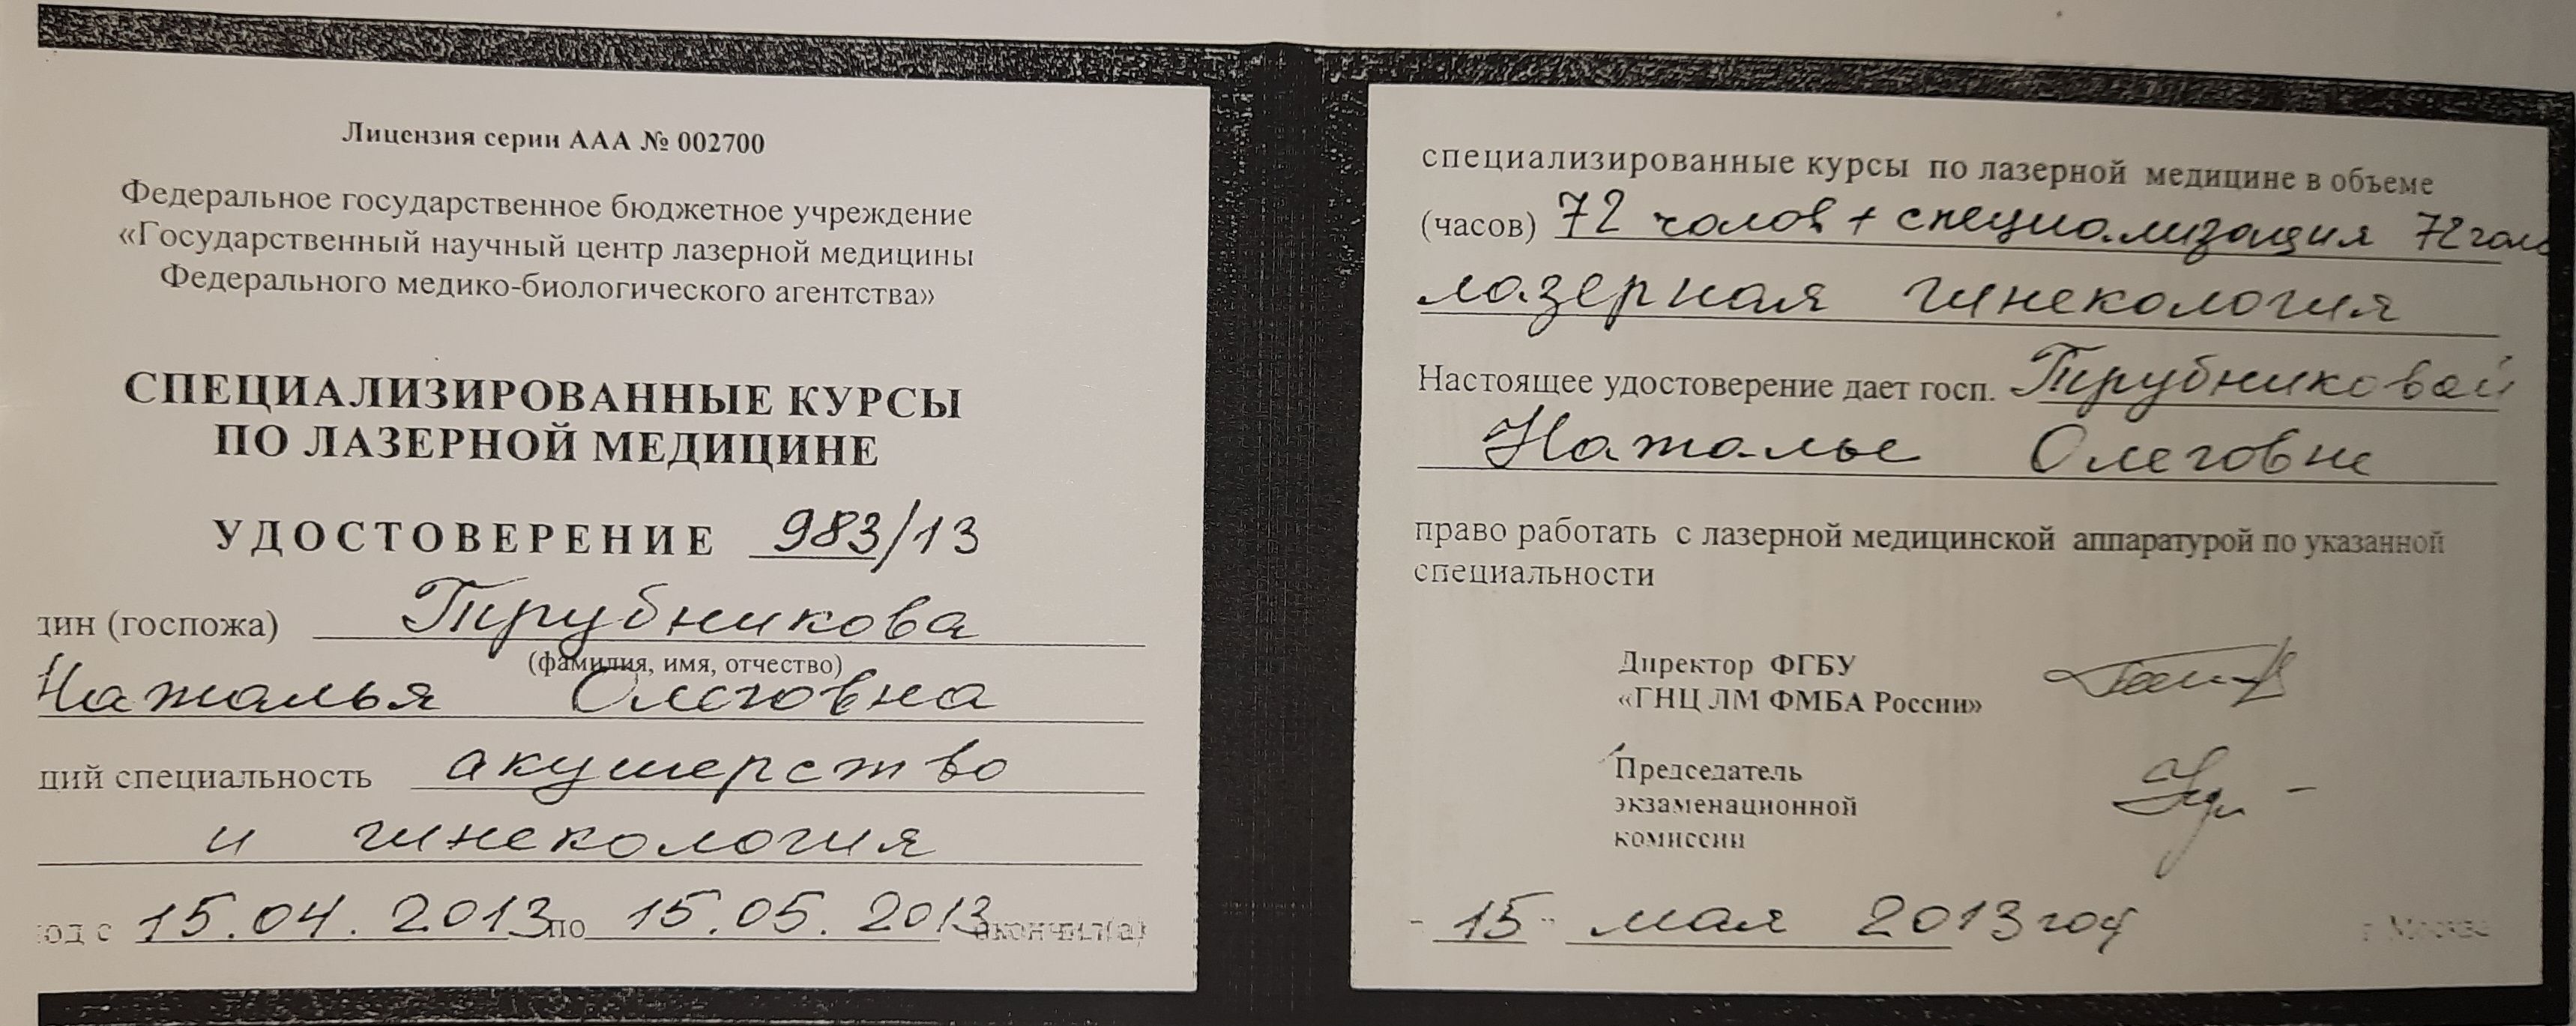 Лицензия серии ААА № 002700
Федеральное государственное бюджетное учреждение
«Государственный научный центр лазерной медицины
Федерального медико-биологического агентства»
СПЕЦИАЛИЗИРОВАННЫЕ КУРСЫ
ПО ЛАЗЕРНОЙ МЕДИЦИНЕ
УДОСТОВЕРЕНИЕ 983/13
дин (госпожа) Трубникова
(фамилия, имя, отчество)
Наталья Олеговна
щий специальность акушерство
и гинекология
од с 15.04.2013 по 15.05.2013 окончил(а)
специализированные курсы по лазерной медицине в объеме
(часов) 72 часов + специализация 72 часо
лазерная гинекология
Настоящее удостоверение дает госп. Трубниковой
Наталье Олеговне
право работать с лазерной медицинской аппаратурой по указанной
специальности
Директор ФГБУ
«ГНЦ ЛМ ФМБА России»
Председатель
экзаменационной
комиссии
"15" мая 2013 год г. Москва